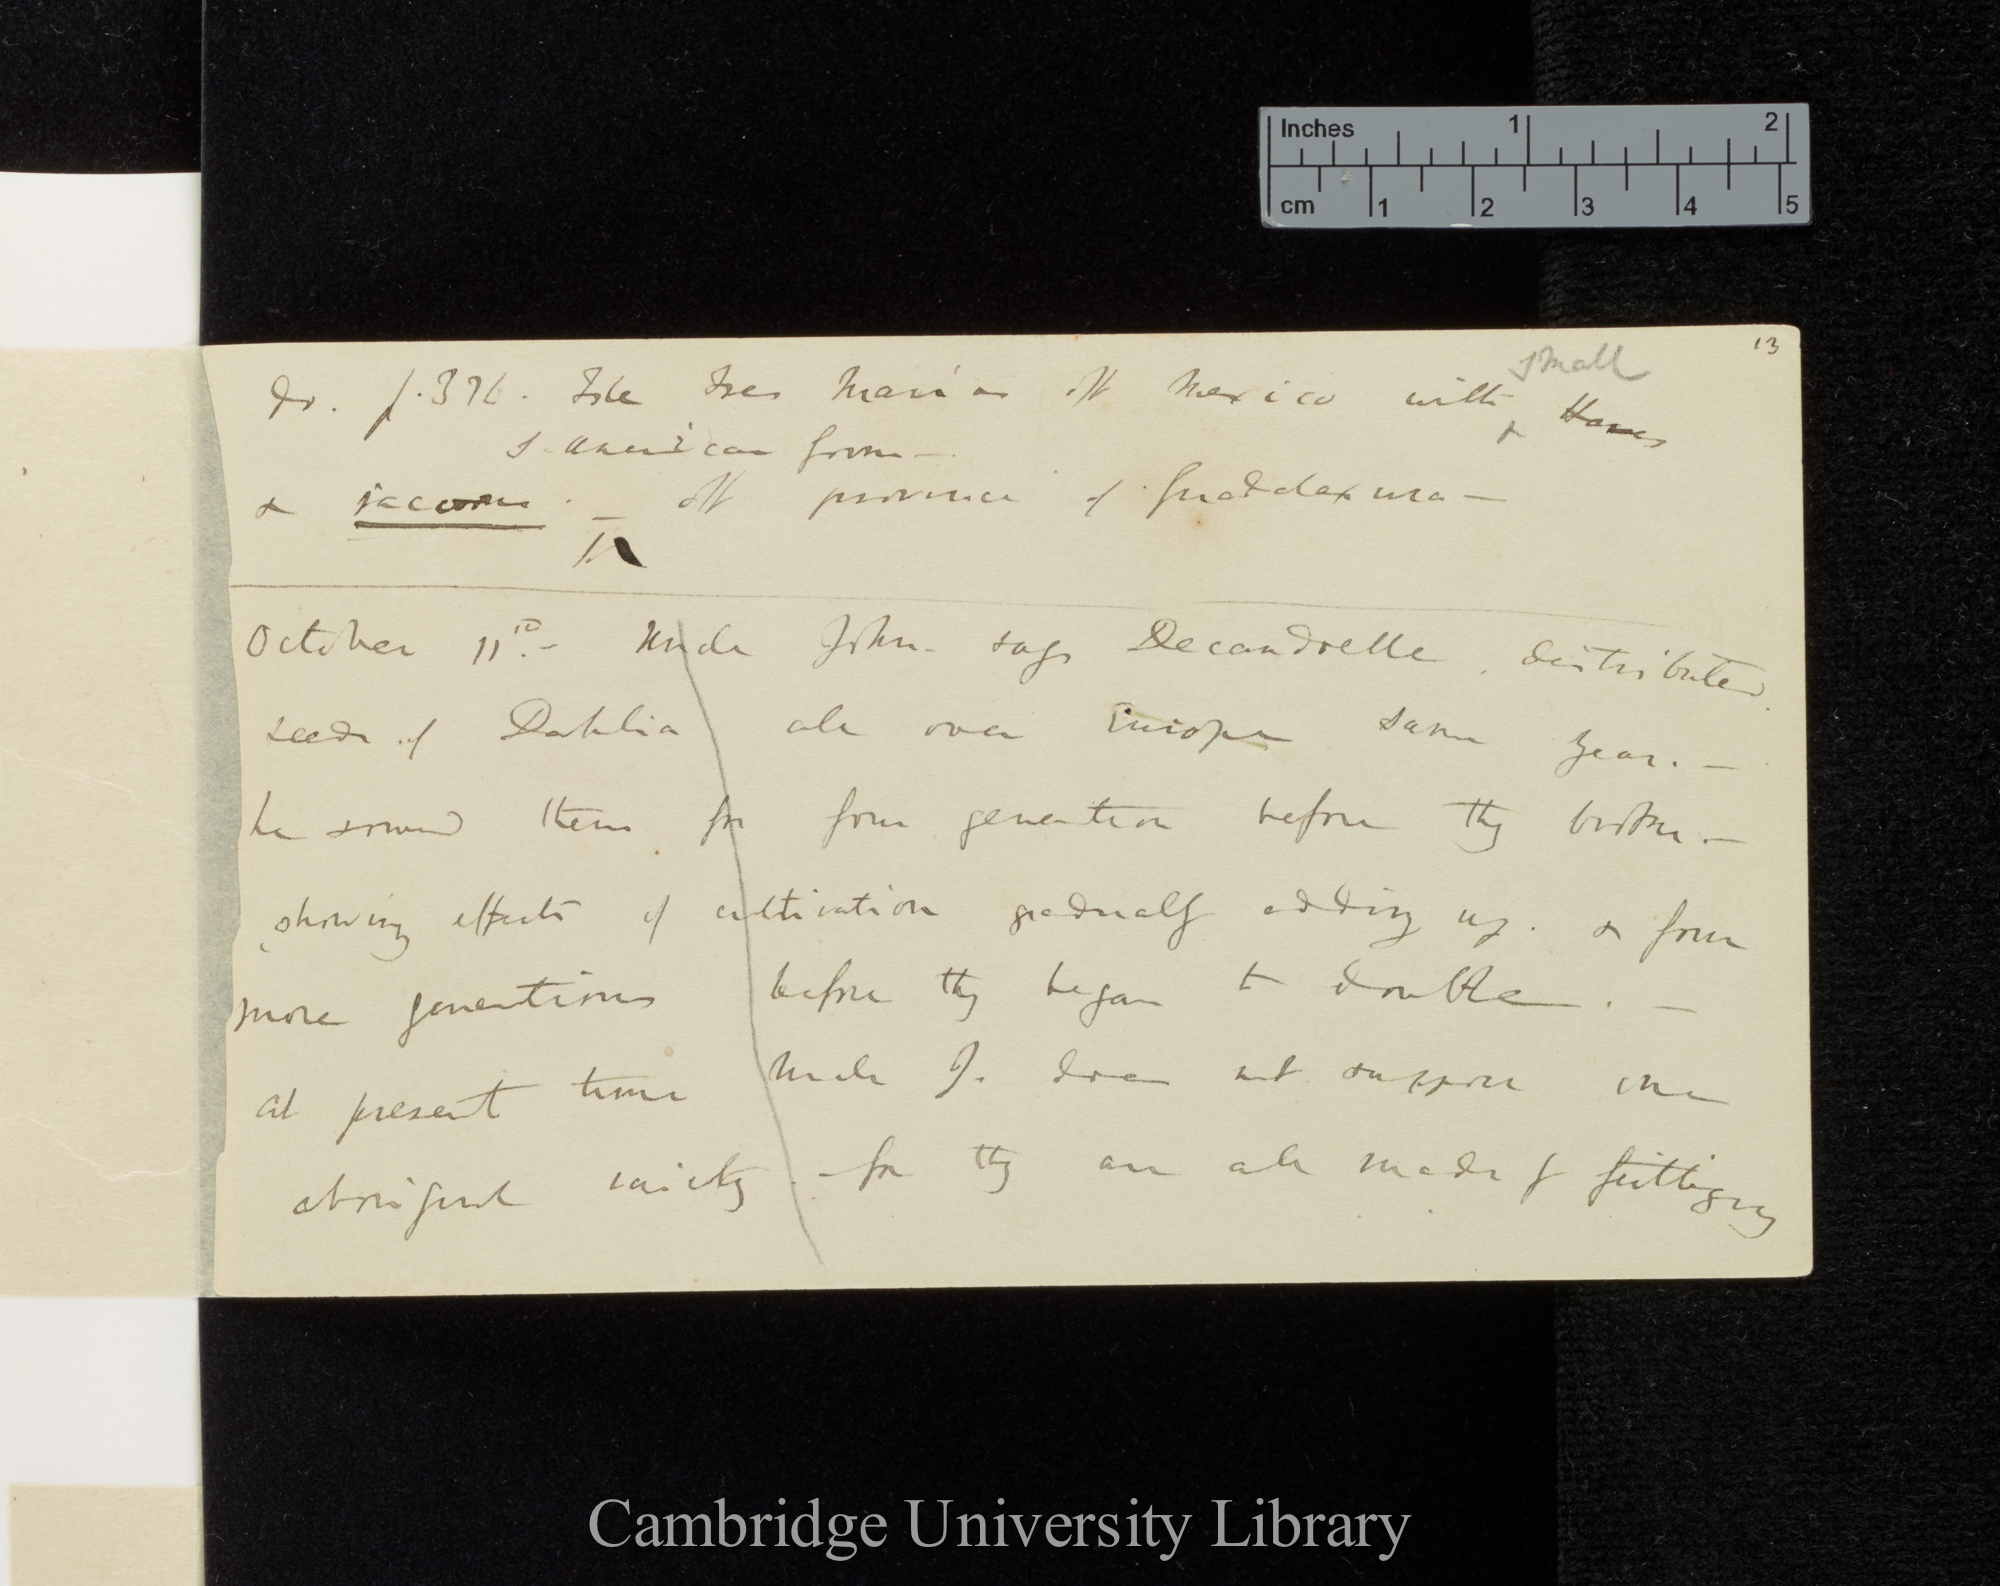 Inches 1 2
cm 1 2 3 4 5
13
small
do. p. 376. Isle Tres Marias off Mexico with & Hares
S. American form —
& racoons. — off province of Guadalaxara —
October 11th. — Uncle John. says Decandoelle. distributed
seeds of Dahlia all over Europe same year. —
he sowed them for four generation before they broke. —
showing effects of cultivation gradually adding up. & four
more generations before they began to double. —
at present time Uncle J. does not suppose one
aboriginal variety. — for they are all made by
Cambridge University Library